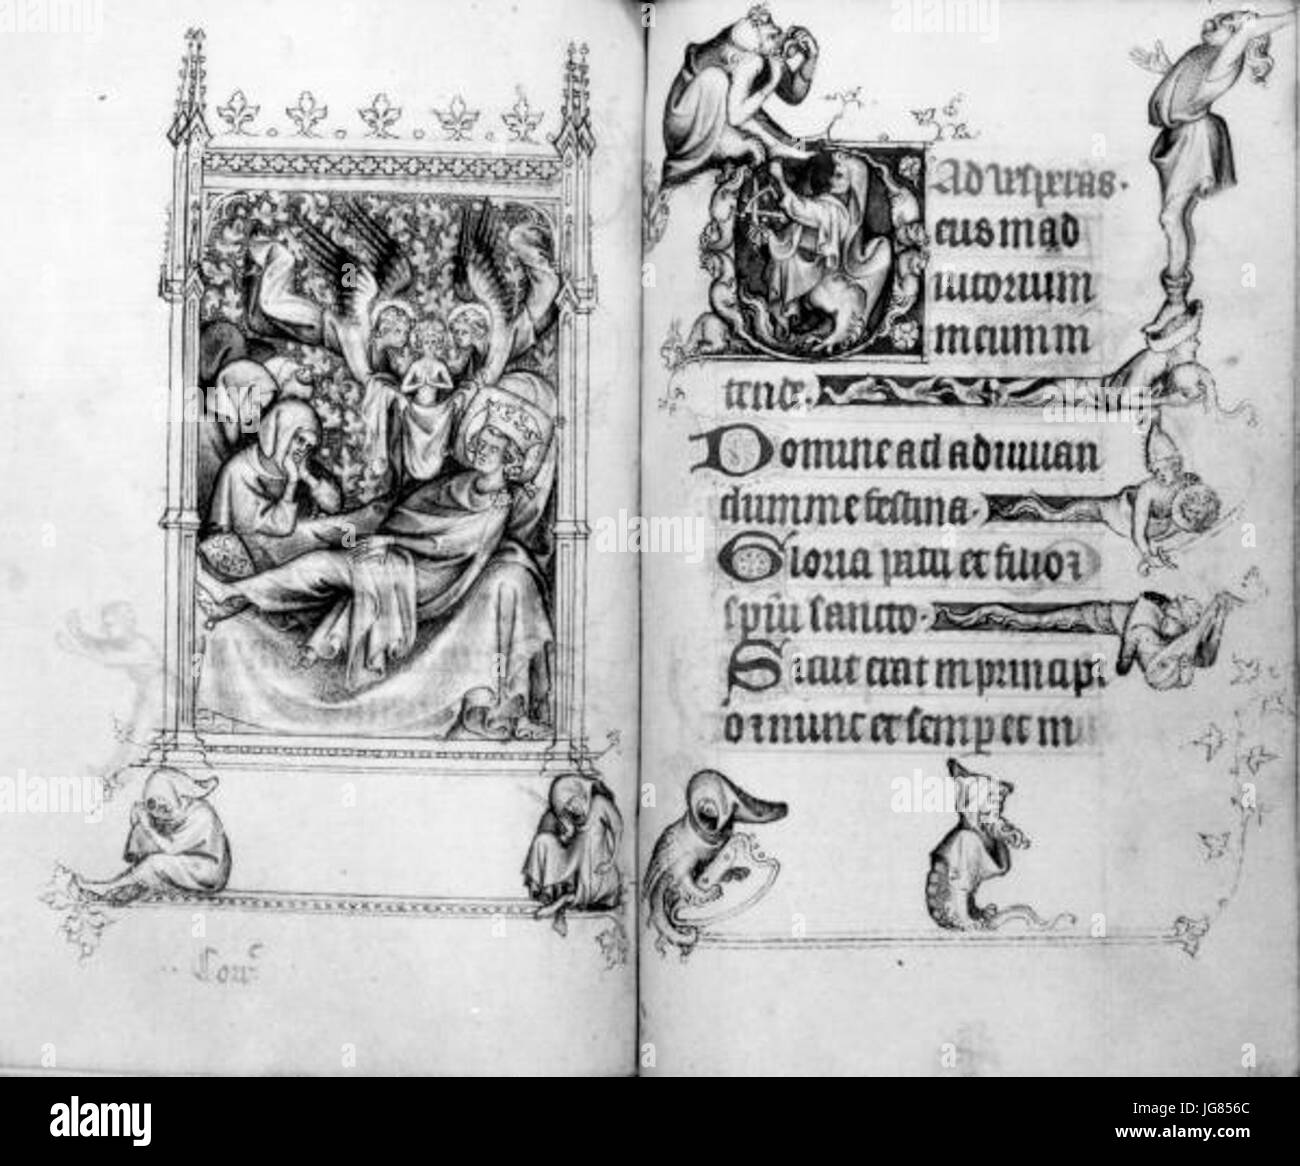 Ad vesperas.
eus in ad
iutorium
meum in
tende.
Domine ad adiuuan
dum me festina.
Gloria patri et filio ⁊
spũi sancto.
Sicut erat in principi
o ⁊ nunc et semp et in
alamy
Image ID: JG856C
www.alamy.com